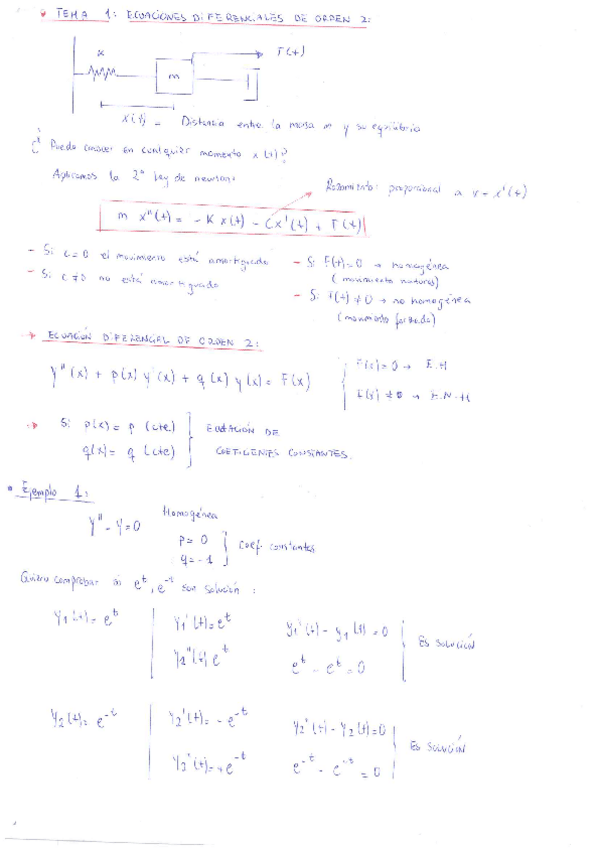 TEMA 1: ECUACIONES DIFERENCIALES DE ORDEN 2:
x
m
F(t)
x(t) = Distancia entre la masa m y su equilibrio
¿ Puedo conocer en cualquier momento x(t)?
Aplicamos la 2ª ley de newton:
Rozamiento: proporcional a v = x'(t)
m x''(t) = - K x(t) - Cx'(t) + F(t)
- Si c=0 el movimiento está amortiguado
- Si c≠0 no está amortiguado
- Si F(t)=0 → homogénea
(movimiento natural)
- Si F(t)≠0 → no homogénea
(movimiento forzado)
→ ECUACIÓN DIFERENCIAL DE ORDEN 2:
y''(x) + p(x) y'(x) + q(x) y(x) = F(x)
F(x)=0 → E.H
F(x) ≠0 → E.N.H
Si p(x) = p (cte)
q(x) = q (cte)
ECUACIÓN DE
COEFICIENTES CONSTANTES.
• Ejemplo 1:
y'' - y = 0
Homogénea
p = 0
q = -1
coef. constantes
Quiero comprobar si e^t, e^-t son solución:
y1(t) = e^t
y1'(t) = e^t
y1''(t) e^t
y1'(t) - y1(t) = 0
e^t - e^t = 0
Es solución
y2(t) = e^-t
y2'(t) = - e^-t
y2'(t) = + e^-t
y2'(t) - y2(t) = 0
e^-t - e^-t = 0
Es solución